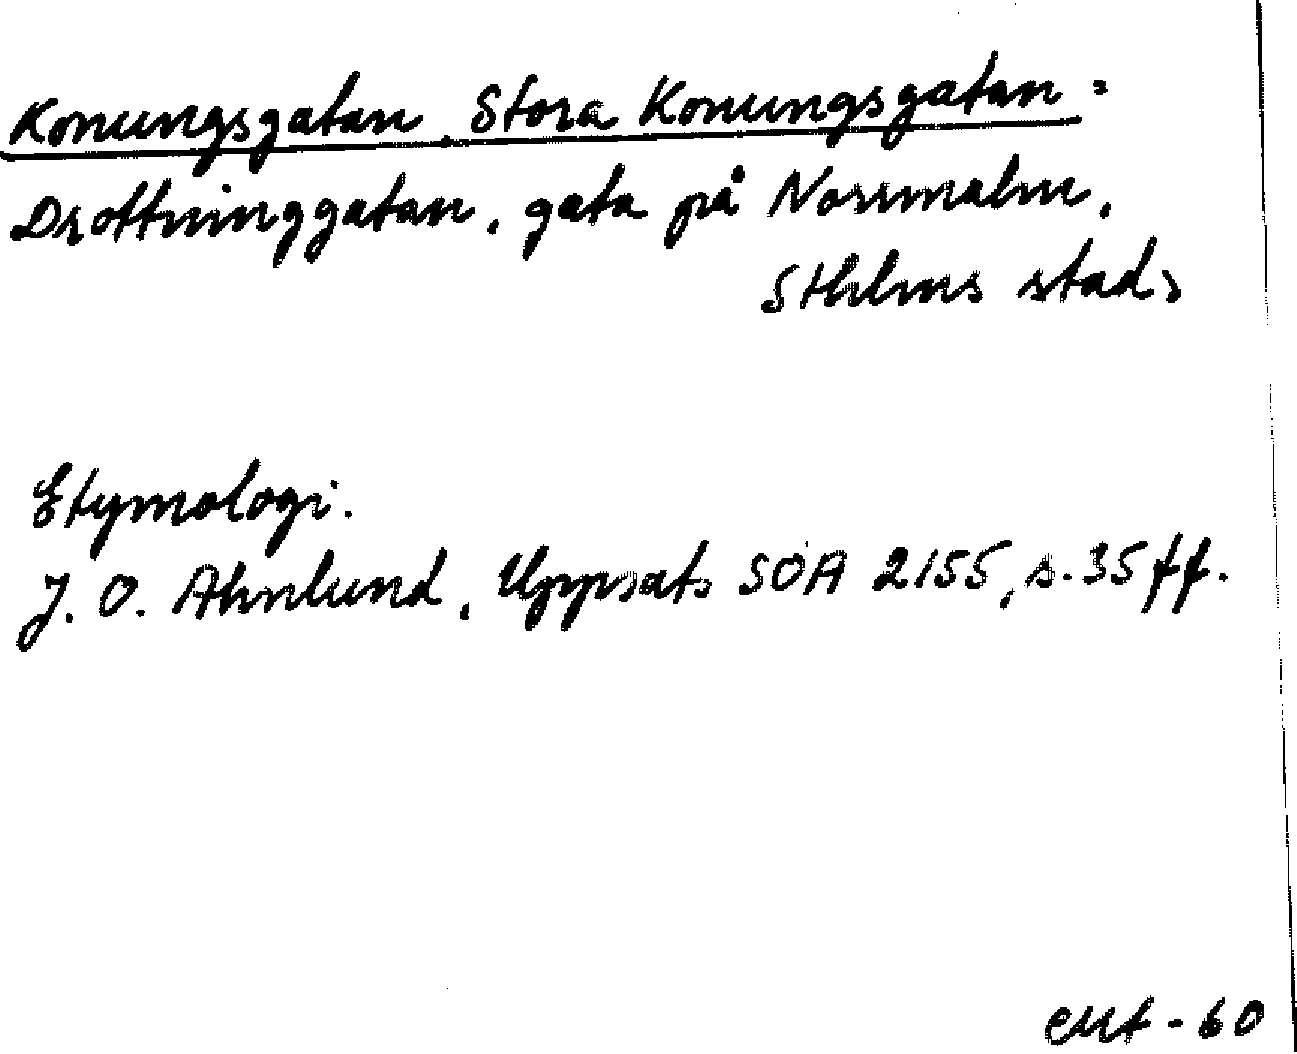 Konungsgatan, Stora Konungsgatan =
Drottninggatan, gata på Norrmalm,
Sthlms stad,
Etymologi.
J. O. Ahnlund, Uppsats SOA 2155, s. 35 ff.
-60